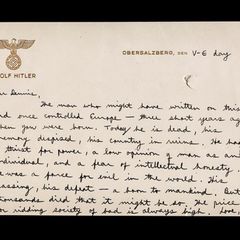 OBERSALZBERG, DEN V-E day
ADOLF HITLER
Dear Dennis,
The man who might have written on this
card once controlled Europe — three short years ago
when you were born. Today he is dead, his
memory despised, his country in ruins. He had
a thirst for power, a low opinion of man as an
individual, and a fear of intellectual honesty.
He was a force for evil in the world. His
passing, his defeat — a boon to mankind. But
thousands died that it might be so. The price
for ridding society of bad is always high. Love,